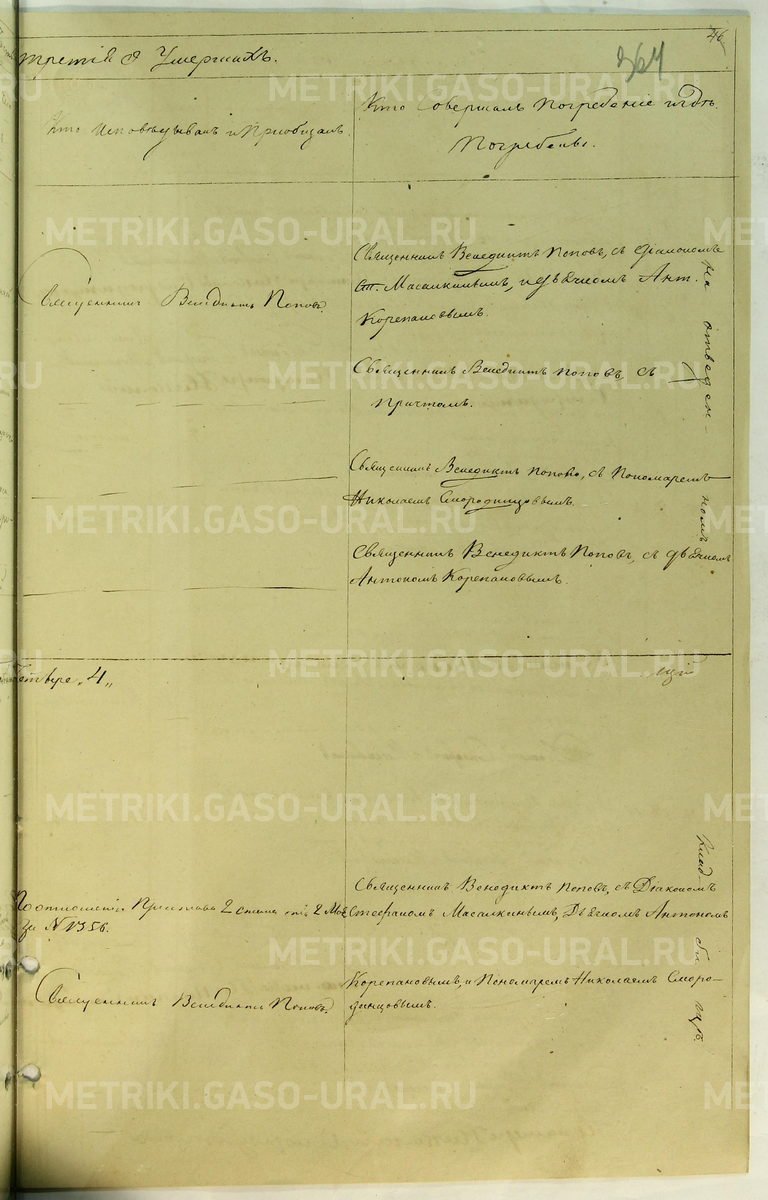 46
364
третія о Умершихъ.
Кто исповѣдывалъ и Приобщалъ.
Кто совершалъ Погребеніе и гдѣ
Погребены.
Священникъ Венедиктъ Поповъ.
Священникъ Венедиктъ Поповъ, съ Діакономъ
Ст. Масалкинымъ, и дьячкомъ Ант.
Корепановымъ.
Священникъ Венедиктъ Поповъ, съ
Причтомъ.
Священникъ Венедиктъ Поповъ, съ Пономаремъ
Николаемъ Смородинцовымъ.
Священникъ Венедиктъ Поповъ, съ дьячкомъ
Антономъ Корепановымъ.
На отведен-
номъ
4„
По отношенію Пристава 2 стана
за № 1356.
Священникъ Венедиктъ Поповъ.
Священникъ Венедиктъ Поповъ, съ Діакономъ
Стефаномъ Масалкинымъ, Дьячкомъ Антономъ
Корепановымъ, и Пономаремъ Николаемъ Сморо-
динцовымъ.
Клад
METRIKI.GASO-URAL.RU